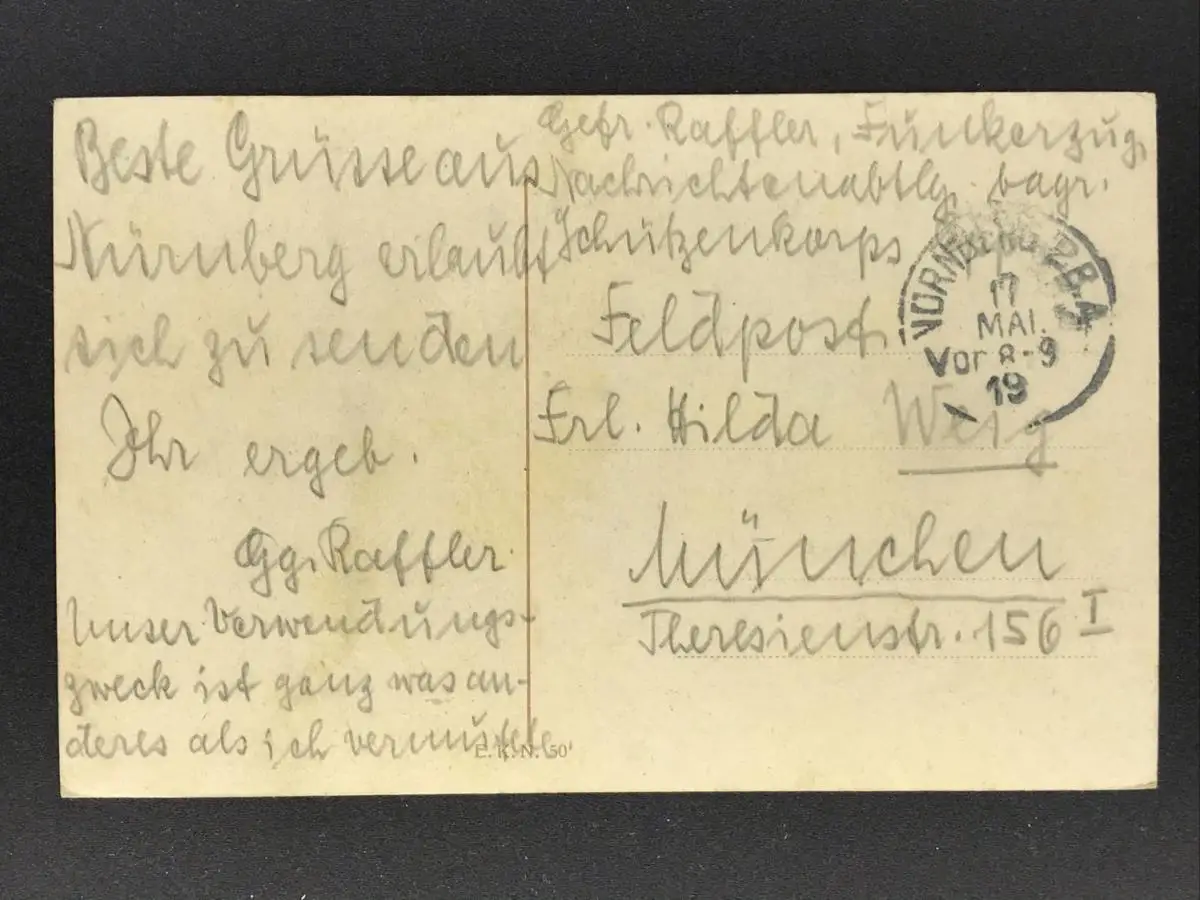 Beste Grüsse aus
Nürnberg erlaubt
sich zu senden
Ihr ergeb.
Gg. Raffler
Unser Verwendungs-
zweck ist ganz was an-
deres als ich vermutete
Gefr. Raffler, Funkerzug,
Nachrichtenabtlg. bayr.
Schützenkorps
Feldpost
NÜRNBERG 2 B.A.
17
MAI.
Vor 8-9
19
Frl. Hilda Weig
München
Theresienstr. 156 I
E. K. N. 50